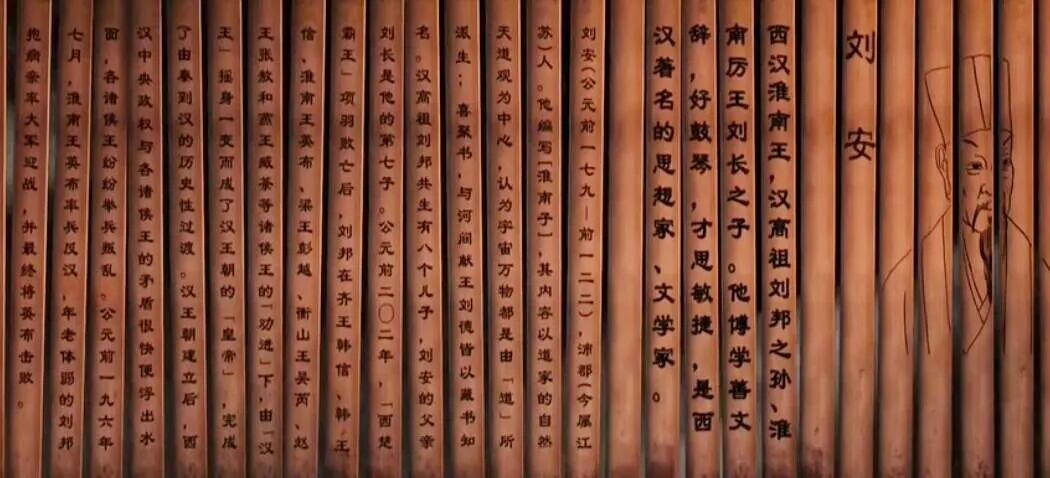 刘安
西汉淮南王，汉高祖刘邦之孙、淮
南厉王刘长之子。他博学善文
辞，好鼓琴，才思敏捷，是西
汉著名的思想家、文学家。
刘安（公元前一七九—前一二二），沛郡（今属江
苏）人。他编写「淮南子」，其内容以道家的自然
天道观为中心，认为宇宙万物都是由「道」所
派生；喜聚书，与河间献王刘德皆以藏书知
名。汉高祖刘邦共生有八个儿子，刘安的父亲
刘长是他的第七子。公元前二〇二年，「西楚
霸王」项羽败亡后，刘邦在齐王韩信、韩王
信、淮南王英布、梁王彭越、衡山王吴芮、赵
王张敖和燕王臧荼等诸侯王的「劝进」下，由「汉
王」摇身一变而成了汉王朝的「皇帝」，完成
了由秦到汉的历史性过渡。汉王朝建立后，西
汉中央政权与各诸侯王的矛盾很快便浮出水
面，各诸侯王纷纷举兵叛乱。公元前一九六年
七月，淮南王英布率兵反汉，年老体弱的刘邦
抱病亲率大军迎战，并最终将英布击败。